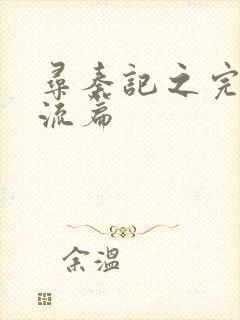 尋秦記之完
流篇
余溫